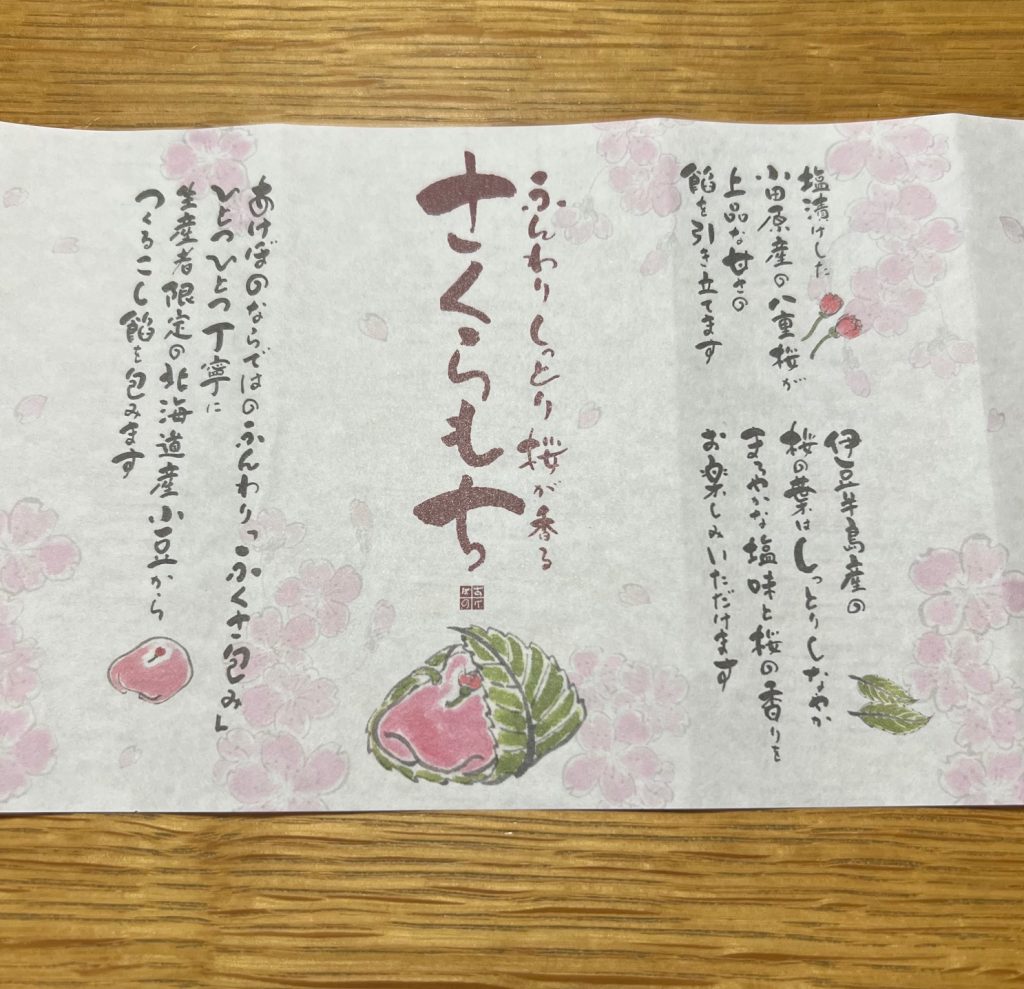 塩漬けした
小田原産の八重桜が
上品な甘さの
餡を引き立てます
伊豆半島産の
桜の葉はしっとりしなやか
まろやかな塩味と桜の香りを
お楽しみいただけます
ふんわりしっとり桜が香る
さくらもち
あけぼの
あけぼのならではのふんわり「ふくさ包み」
ひとつひとつ丁寧に
生産者限定の北海道産小豆から
つくるこし餡を包みます